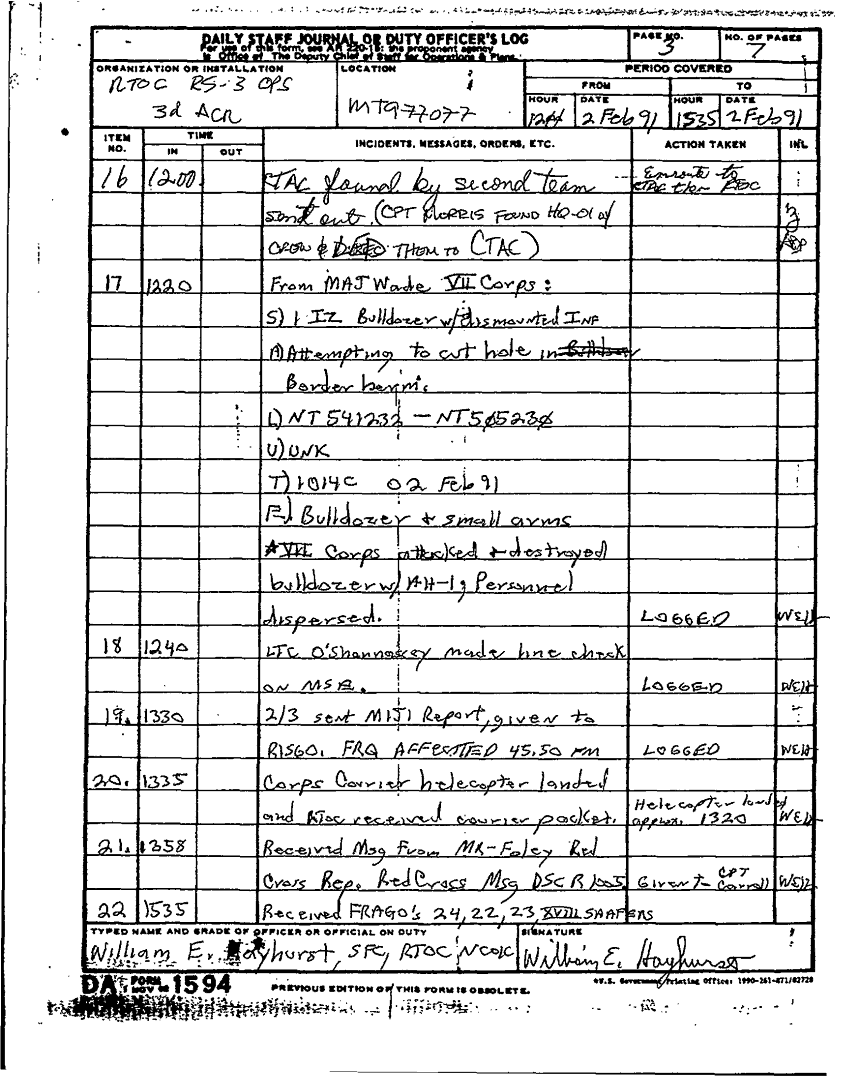 DAILY STAFF JOURNAL OR DUTY OFFICER'S LOG
For use of this form, see AR 220-15; the proponent agency
is Office of The Deputy Chief of Staff for Operations & Plans.
PAGE NO.
3
NO. OF PAGES
7
ORGANIZATION OR INSTALLATION
RTOC RS-3 OPS
3d ACR
LOCATION
MT977077
PERIOD COVERED
FROM
TO
HOUR
DATE
2 Feb 91
HOUR
1535
DATE
2 Feb 91
ITEM NO.
TIME
IN
OUT
INCIDENTS, MESSAGES, ORDERS, ETC.
ACTION TAKEN
INL
16 1200 CTAC found by second team Enroute to
CTAC then RTOC
sent out. (CPT MORRIS FOUND HQ-01 w/
CREW & THEM TO CTAC)
17 1220 From MAJ Wade VII Corps:
S) 1 IZ Bulldozer w/dismounted INF
A) Attempting to cut hole in
Border berm.
L) NT 541232 - NT 505230
U) UNK
T) 1014C 02 Feb 91
E) Bulldozer + small arms
VII Corps attacked + destroyed
bulldozer w/ AH-1; Personnel
dispersed. LOGGED WEH
18 1240 LTC made line check
on MSE. LOGGED WEH
19. 1330 2/3 sent MIJI Report, given to
RISGO. FRQ AFFECTED 45.50 FM LOGGED WEH
20. 1335 Corps Courier helecopter landed
Helecopter landed
and RTOC received courier packet. approx. 1320 WEH
21. 1358 Received Msg From MR-Foley Red
Cross Rep. Red Cross Msg DSC R 1005 Given to CPT Carroll WEH
22 1535 Received FRAGO's 24, 22, 23, XVIII
TYPED NAME AND GRADE OF OFFICER OR OFFICIAL ON DUTY
William E. Hayhurst, SFC, RTOC NCOIC
SIGNATURE
William E. Hayhurst
DA FORM 1594
PREVIOUS EDITION OF THIS FORM IS OBSOLETE.
U.S. Government Printing Office: 1990-261-871/02728